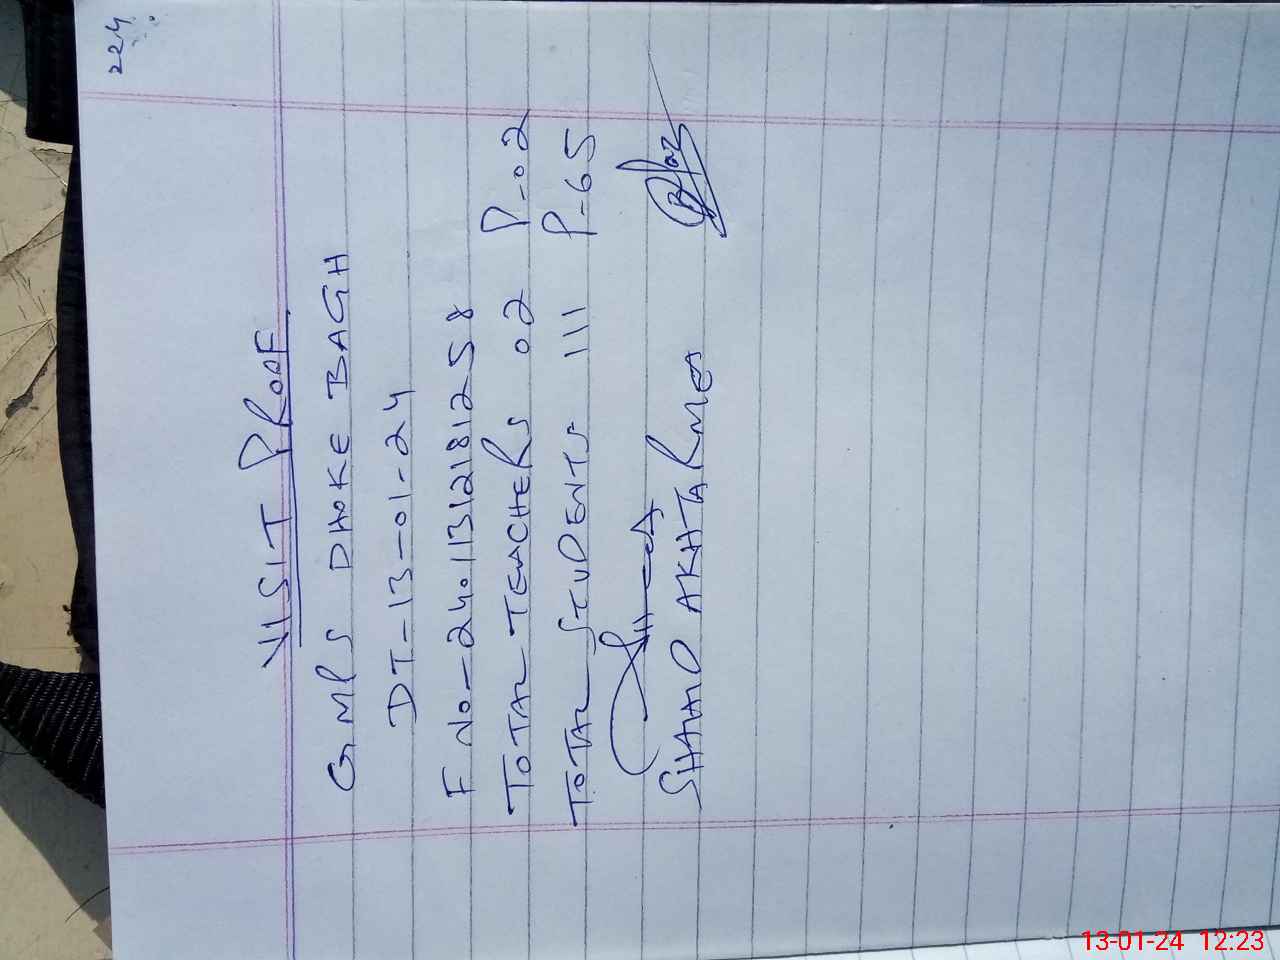 224
VISIT PROOF
GMPS DHOKE BAGH
DT-13-01-24
F No-2401131218125 8
TOTAL TEACHERS 02 P-02
TOTAL STUDENTS 111 P-65
SHAHID AKHTAR MEA
13-01-24 12:23